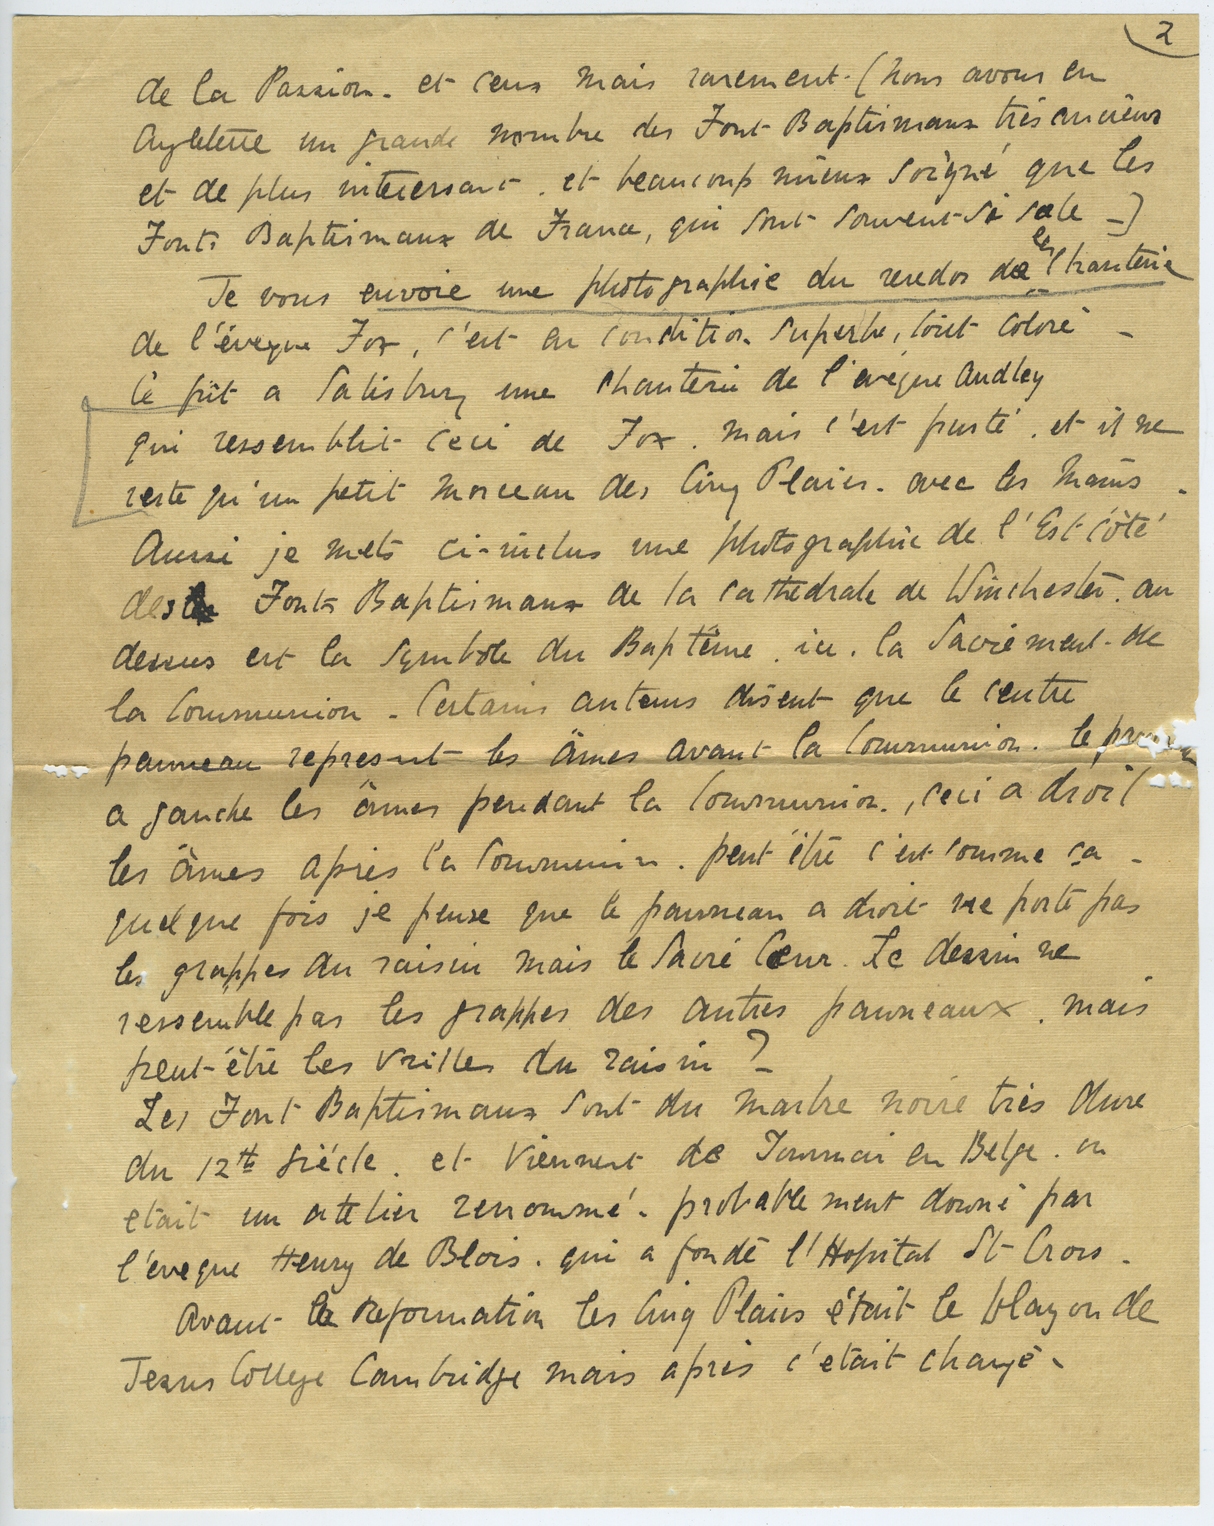 2
de la Passion. et ceux mais rarement. (nous avons en
Angleterre un grande nombre des Font Baptismaux très anciens
et de plus interessant. et beaucoup mieux soigné que les
Fonts Baptismaux de France, qui sont souvent si sale _)
Je vous envoie une photographie du reredos de la Chanterie
de l'éveque Fox, c'est en condition superbe, tout coloré _
Ce fût a Salisbury une Chanterie de l'évêque Audley
qui ressemblit ceci de Fox. mais c'est pasté. et il ne
reste qu'un petit morceau des Cinq Plaies. avec les mains.
Aussi je mets ci-inclus une photographie de l'Est côté
des Fonts Baptismaux de la cathedrale de Winchester. au
dessus est la symbole du Baptême. ici. la Sacrement de
la Communion _ Certains auteurs disent que le centre
panneau represent les âmes avant la Communion. le
a gauche les âmes pendant la Communion., ceci a droit
les âmes après la Communion. peut être c'est comme ca _
quelque fois je pense que le panneau a droit ne porte pas
les grappes du raisin mais le Sacré Cœur. Le dessin ne
ressemble pas les grappes des autres panneaux. mais
peut-être les vrilles du raisin ? _
Les Font Baptismaux sont du marbre noire très dure
du 12th siécle. et viennent de Tournai en Belge. ou
etait un attelier renommé. probablement donné par
l'eveque Henry de Blois. qui a fondé l'Hopital St Crois.
Avant la Reformation les Cinq Plaies était le blazon de
Jesus College Cambridge mais après c'etait changé.